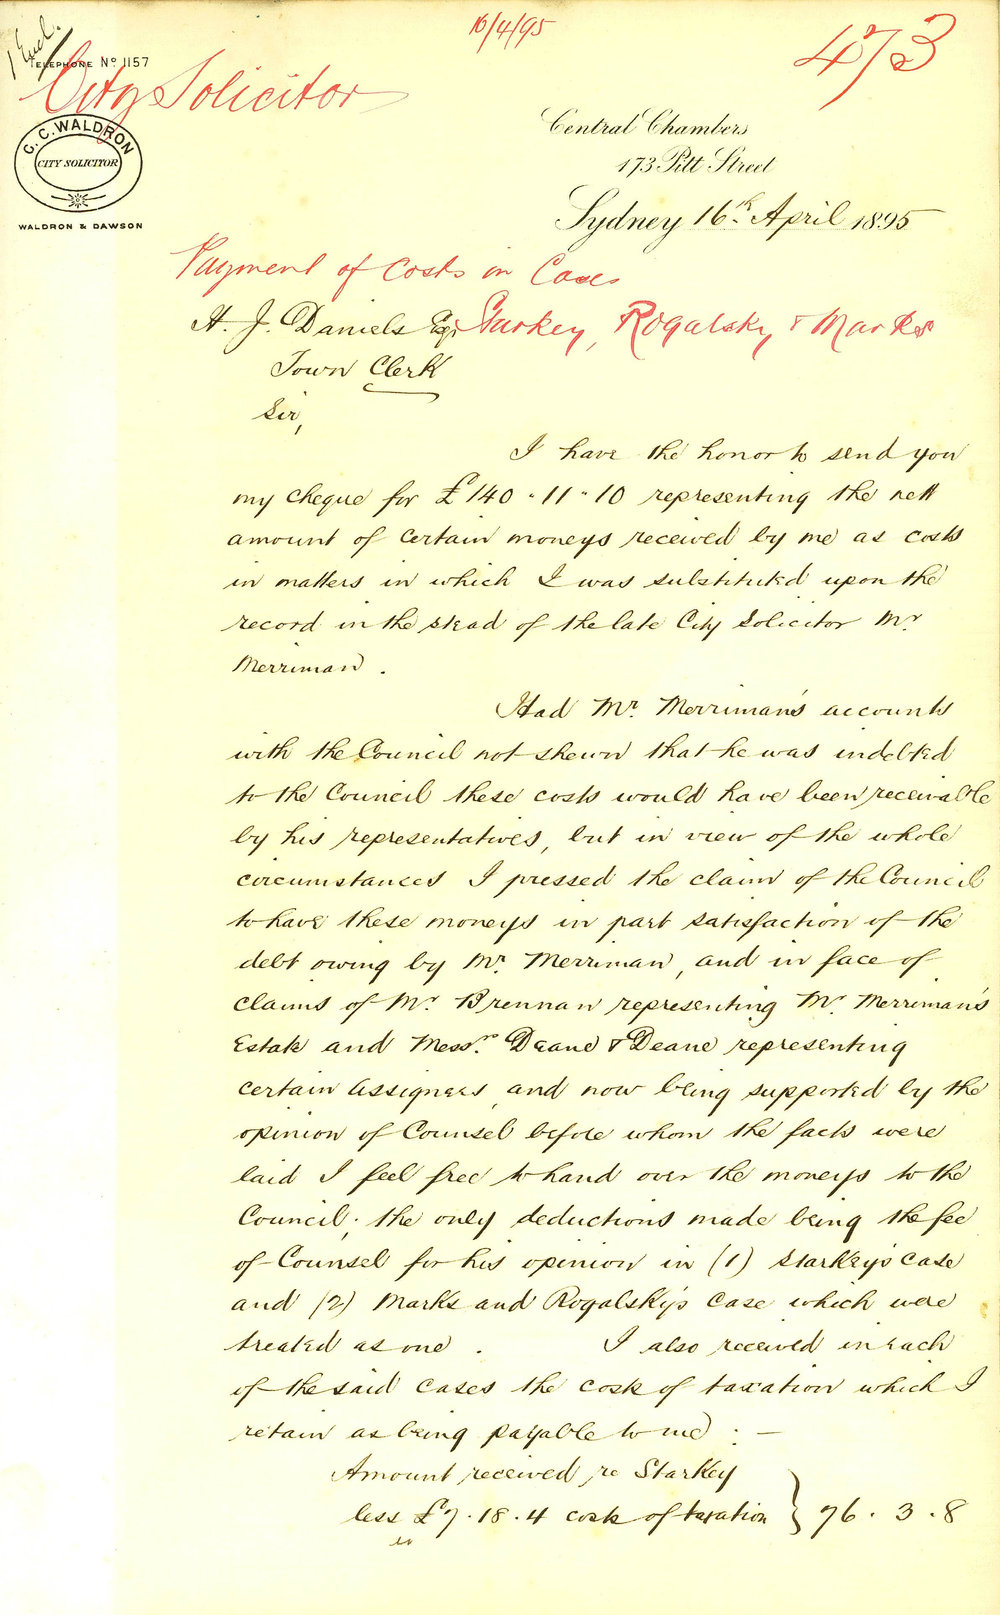 16/4/95
473
1 Encl.
TELEPHONE Nº 1157
City Solicitor
C. C. WALDRON
CITY SOLICITOR
WALDRON & DAWSON
Central Chambers
173 Pitt Street
Sydney 16th April 1895
Payment of Costs in Cases
H. J. Daniels Esqr Starkey, Rogalsky & Marks
Town Clerk
Sir,
I have the honor to send you
my cheque for £140-11-10 representing the nett
amount of certain moneys received by me as costs
in matters in which I was substituted upon the
record in the stead of the late City Solicitor Mr
Merriman.
Had Mr. Merriman's accounts
with the Council not shewn that he was indebted
to the Council these costs would have been receivable
by his representatives, but in view of the whole
circumstances I pressed the claim of the Council
to have these moneys in part satisfaction of the
debt owing by Mr. Merriman, and in face of
claims of Mr. Brennan representing Mr. Merriman's
Estate and Messrs. Deane & Deane representing
certain assignees, and now being supported by the
opinion of Counsel before whom the facts were
laid I feel free to hand over the moneys to the
Council; the only deductions made being the fee
of Counsel for his opinion in (1) Starkey's case
and (2) Marks and Rogalsky's case which were
treated as one. I also received in each
of the said cases the costs of taxation which I
retain as being payable to me :—
Amount received re Starkey
less £7.18.4 costs of taxation } 76.3.8